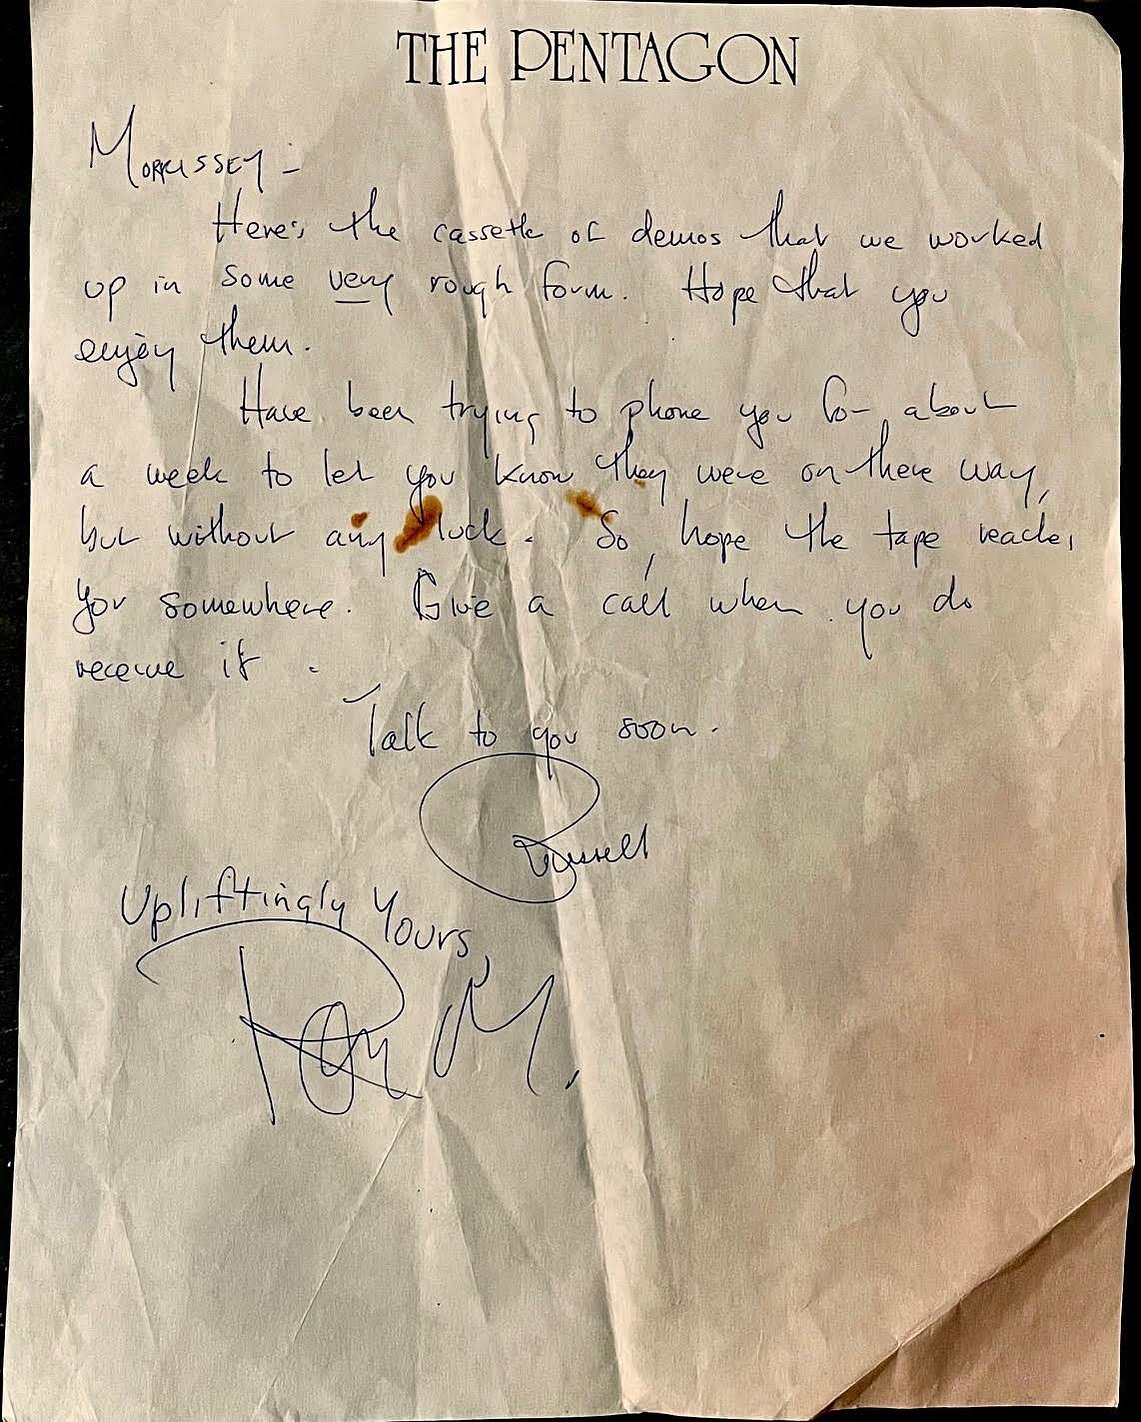 THE PENTAGON
MORRISSEY -
Here's the cassette of demos that we worked
up in some very rough form. Hope that you
enjoy them.
Have been trying to phone you for about
a week to let you know they were on there way,
but without any luck. So, hope the tape reaches
you somewhere. Give a call when you do
receive it.
Talk to you soon.
Russell
Upliftingly Yours,
Ron M.